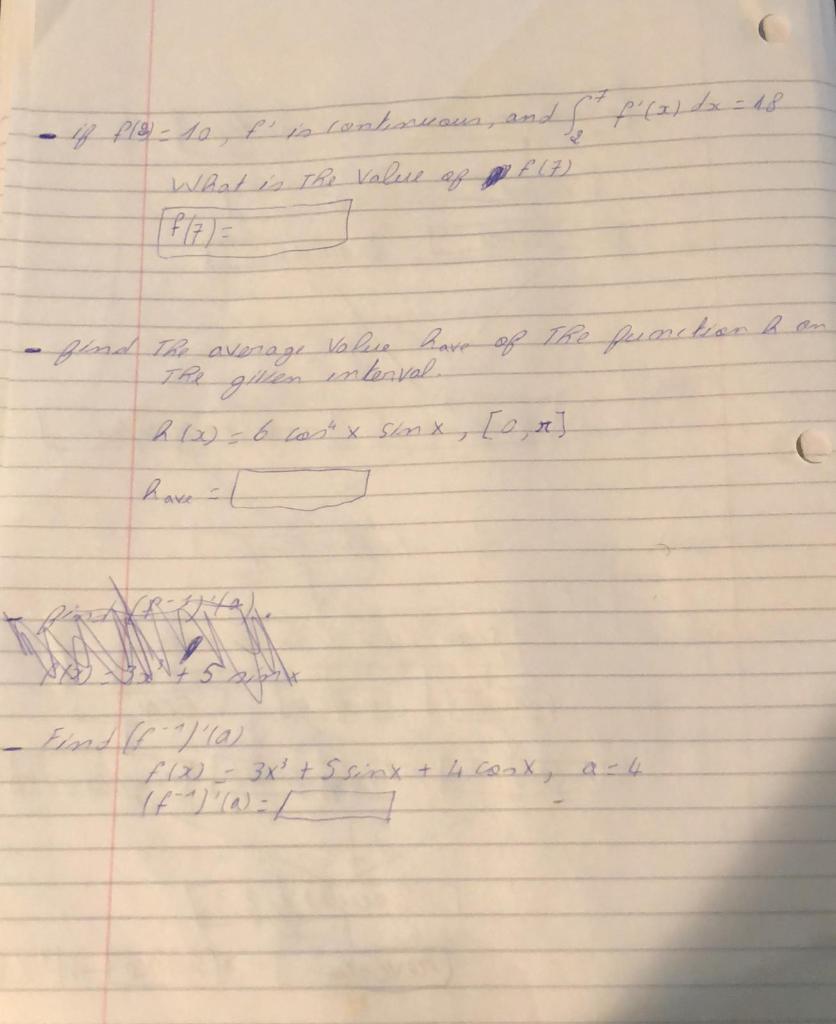 - if f(2) = 10, f' is continuous, and ∫₂⁷ f'(x) dx = 18
What is The Value of f(7)
f(7) =
- find The average Value have of The function h on
The given interval.
h(x) = 6 cos⁴ x sin x, [0, π]
h ave =
- Find (f⁻¹)'(a)
f(x) = 3x³ + 5 sin x
- Find (f⁻¹)'(a)
f(x) = 3x³ + 5 sinx + 4 cosx, a = 4
(f⁻¹)'(a) =